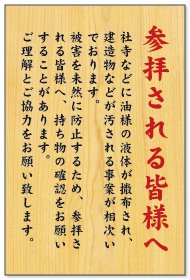 参拝される皆様へ
社寺などに油様の液体が撒布され、
建造物などが汚される事案が相次い
でおります。
被害を未然に防止するため、参拝さ
れる皆様へ、持ち物の確認をお願い
することがあります。
ご理解とご協力をお願い致します。